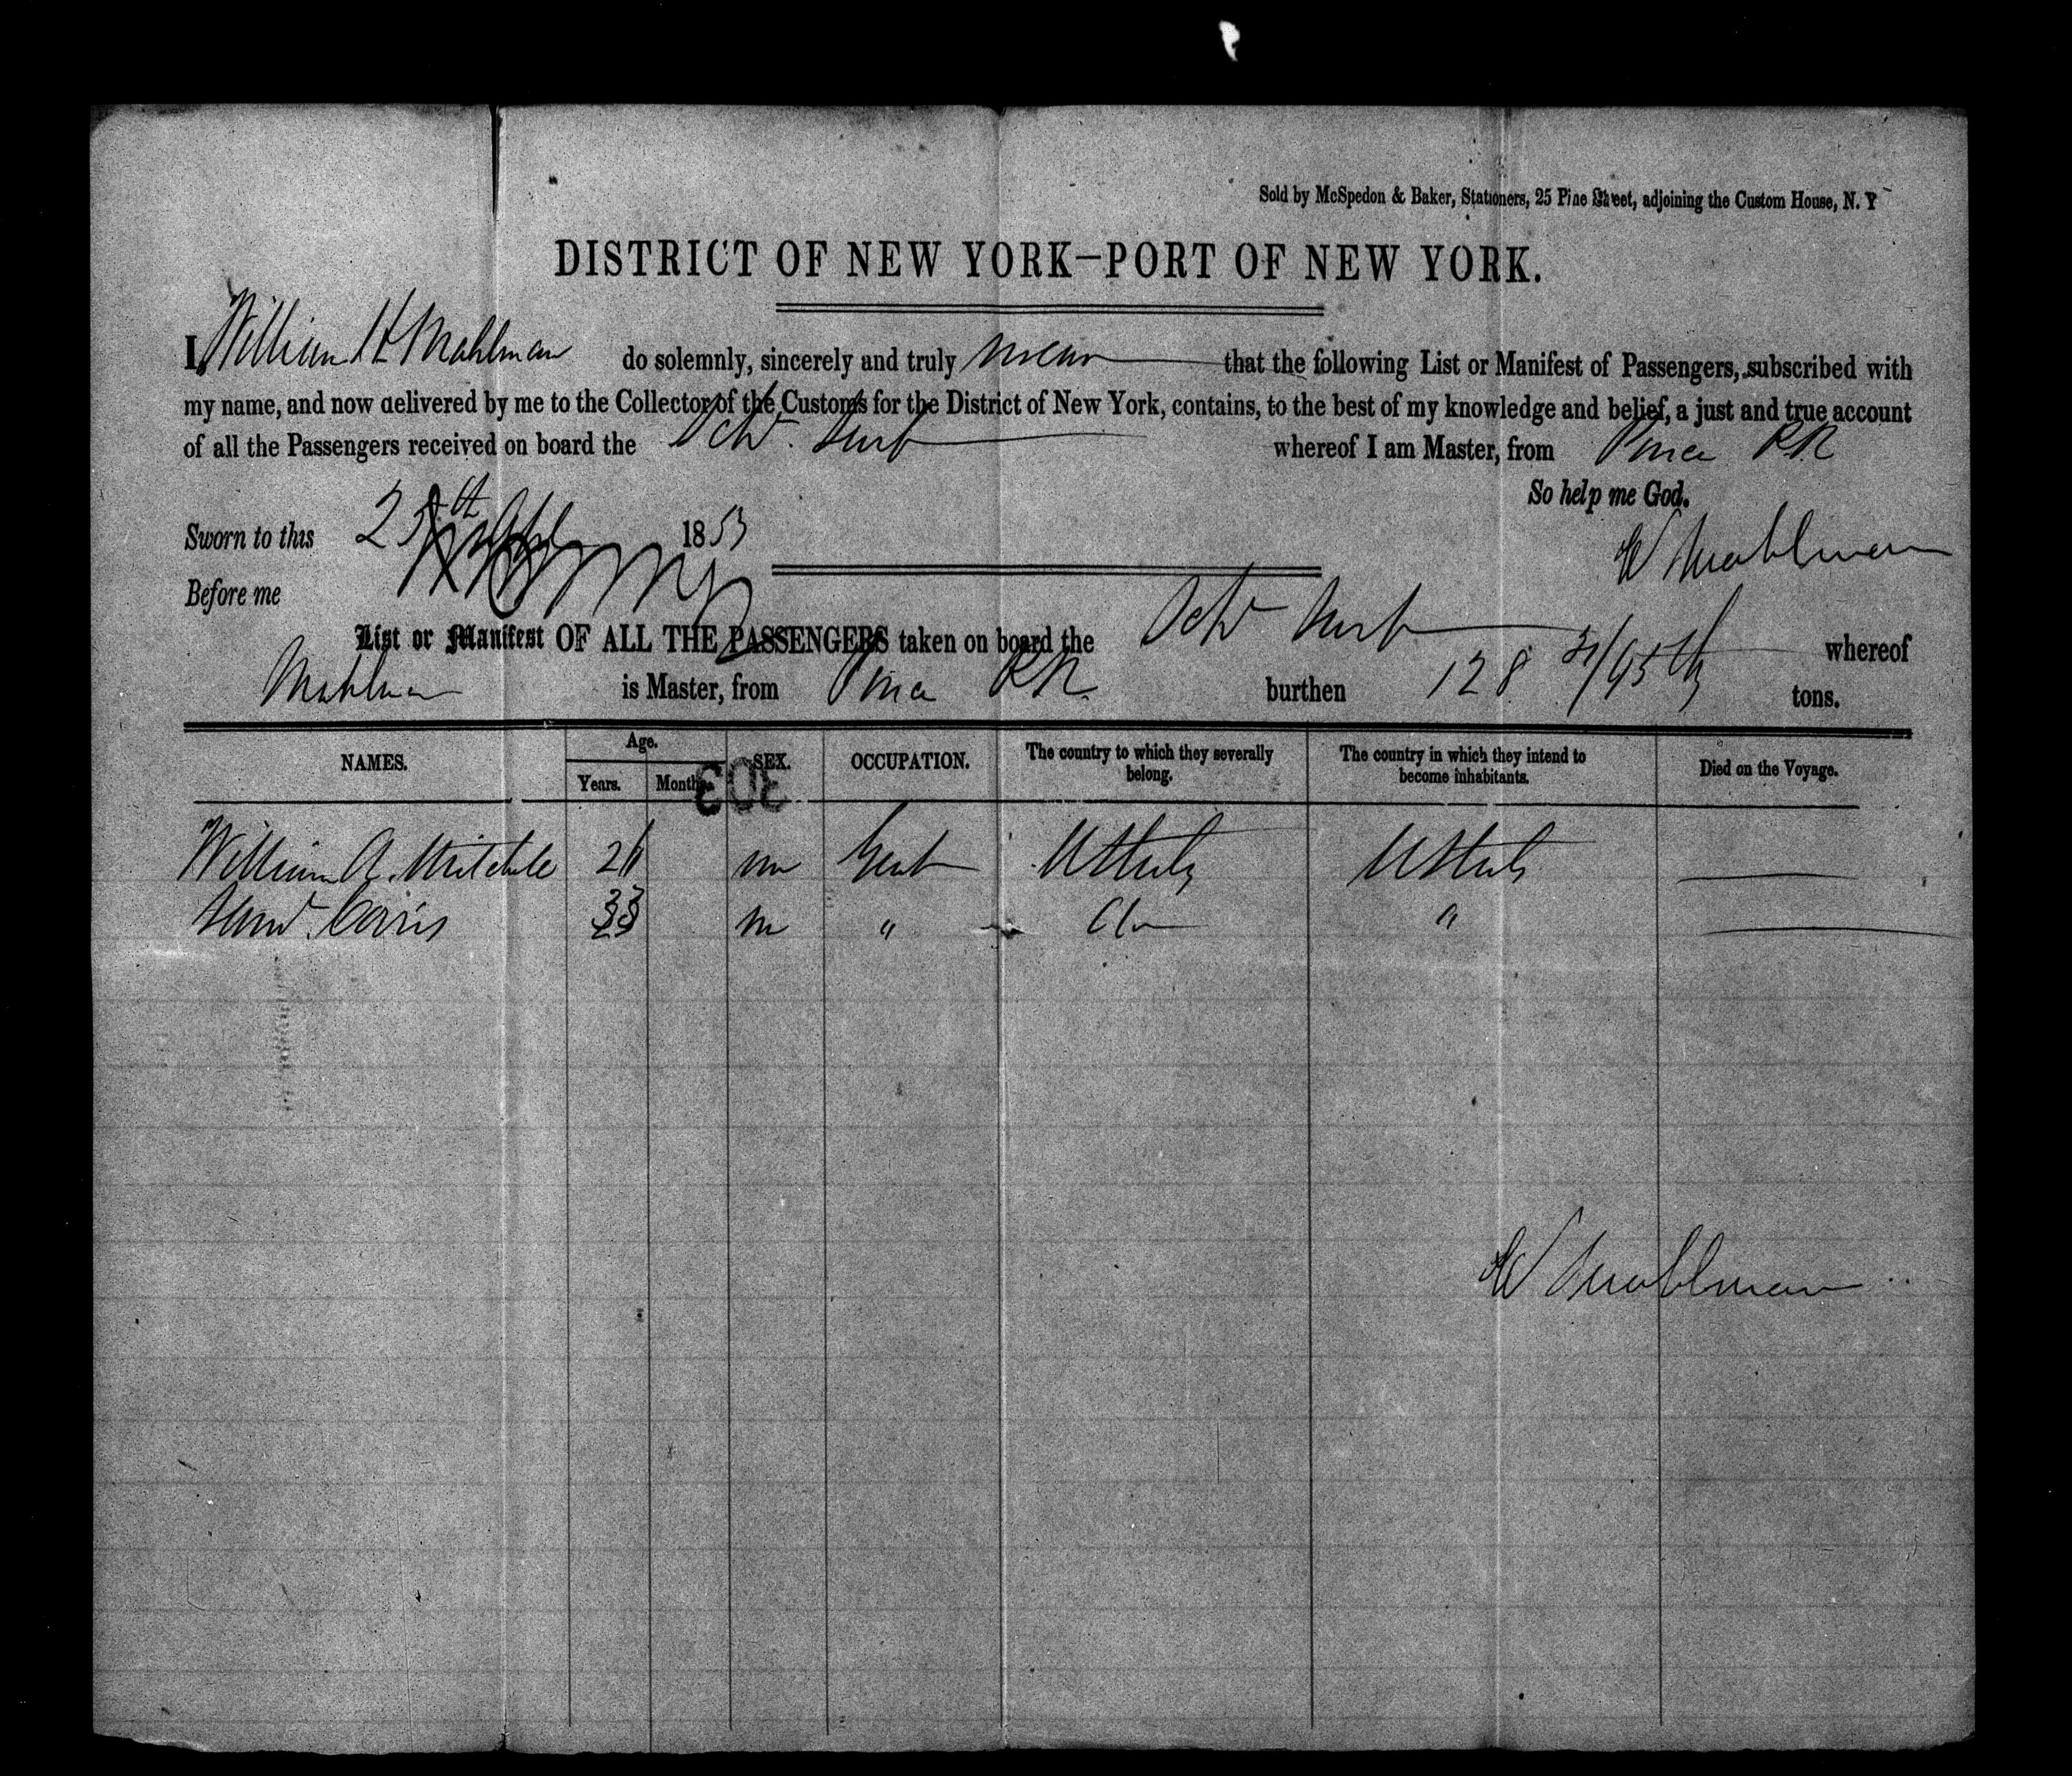 Sold by McSpedon & Baker, Stationers, 25 Pine Street, adjoining the Custom House, N. Y
DISTRICT OF NEW YORK—PORT OF NEW YORK.
I, William H Mahlman do solemnly, sincerely and truly swear that the following List or Manifest of Passengers, subscribed with
my name, and now delivered by me to the Collector of the Customs for the District of New York, contains, to the best of my knowledge and belief, a just and true account
of all the Passengers received on board the Schr. whereof I am Master, from Ponce P.R.
So help me God.
Sworn to this 25th 1853
W Mahlman
Before me
List or Manifest OF ALL THE PASSENGERS taken on board the Schr whereof
Mahlman is Master, from Ponce P.R. burthen 128 /95th tons.
NAMES. Age. SEX. OCCUPATION. The country to which they severally belong. The country in which they intend to become inhabitants. Died on the Voyage.
Years. Months.
303
William A. Mitchele m Gent UStates UStates
m " "
W Mahlman